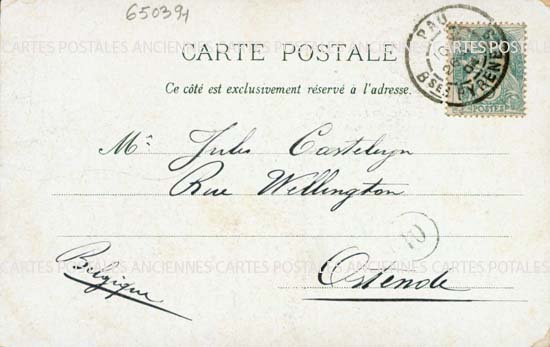 650394
CARTES POSTALES ANCIENNES CARTES POSTALES ANCIENNES
CARTE POSTALE
PAU
Bses PYRENEES
POSTES
Ce côté est exclusivement réservé à l'adresse.
Mr Jules Casteleyn
Rue Wellington
Ostende
Belgique
CARTES POSTALES ANCIENNES CARTES POSTALES ANCIENNES CARTES POTALES